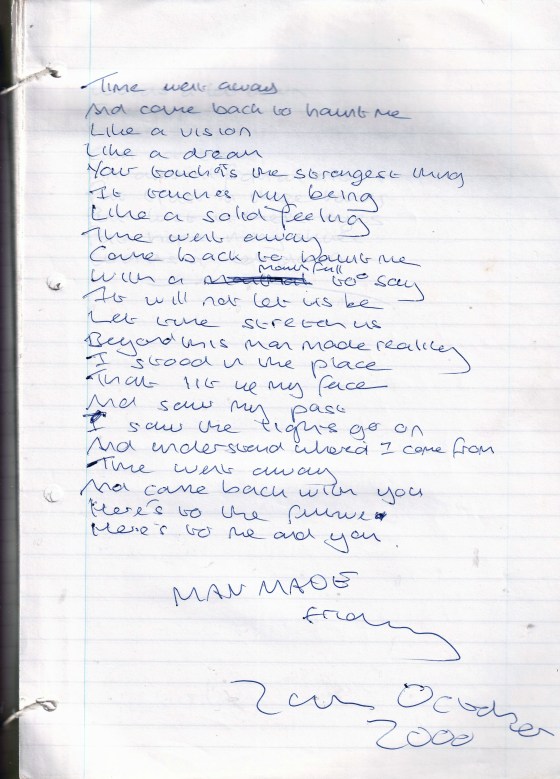 Time went away
And came back to haunt me
Like a vision
Like a dream
Your touch is the strangest thing
It touches my being
Like a solid feeling
Time went away
Came back to haunt me
With a mouthfull to say
It will not let us be
Let time stretch us
Beyond this man made reality
I stood in the place
That lit up my face
And saw my past
I saw the lights go on
And understand where I come from
Time went away
And came back with you
Here's to the future
Here's to me and you
MAN MADE
October
2000